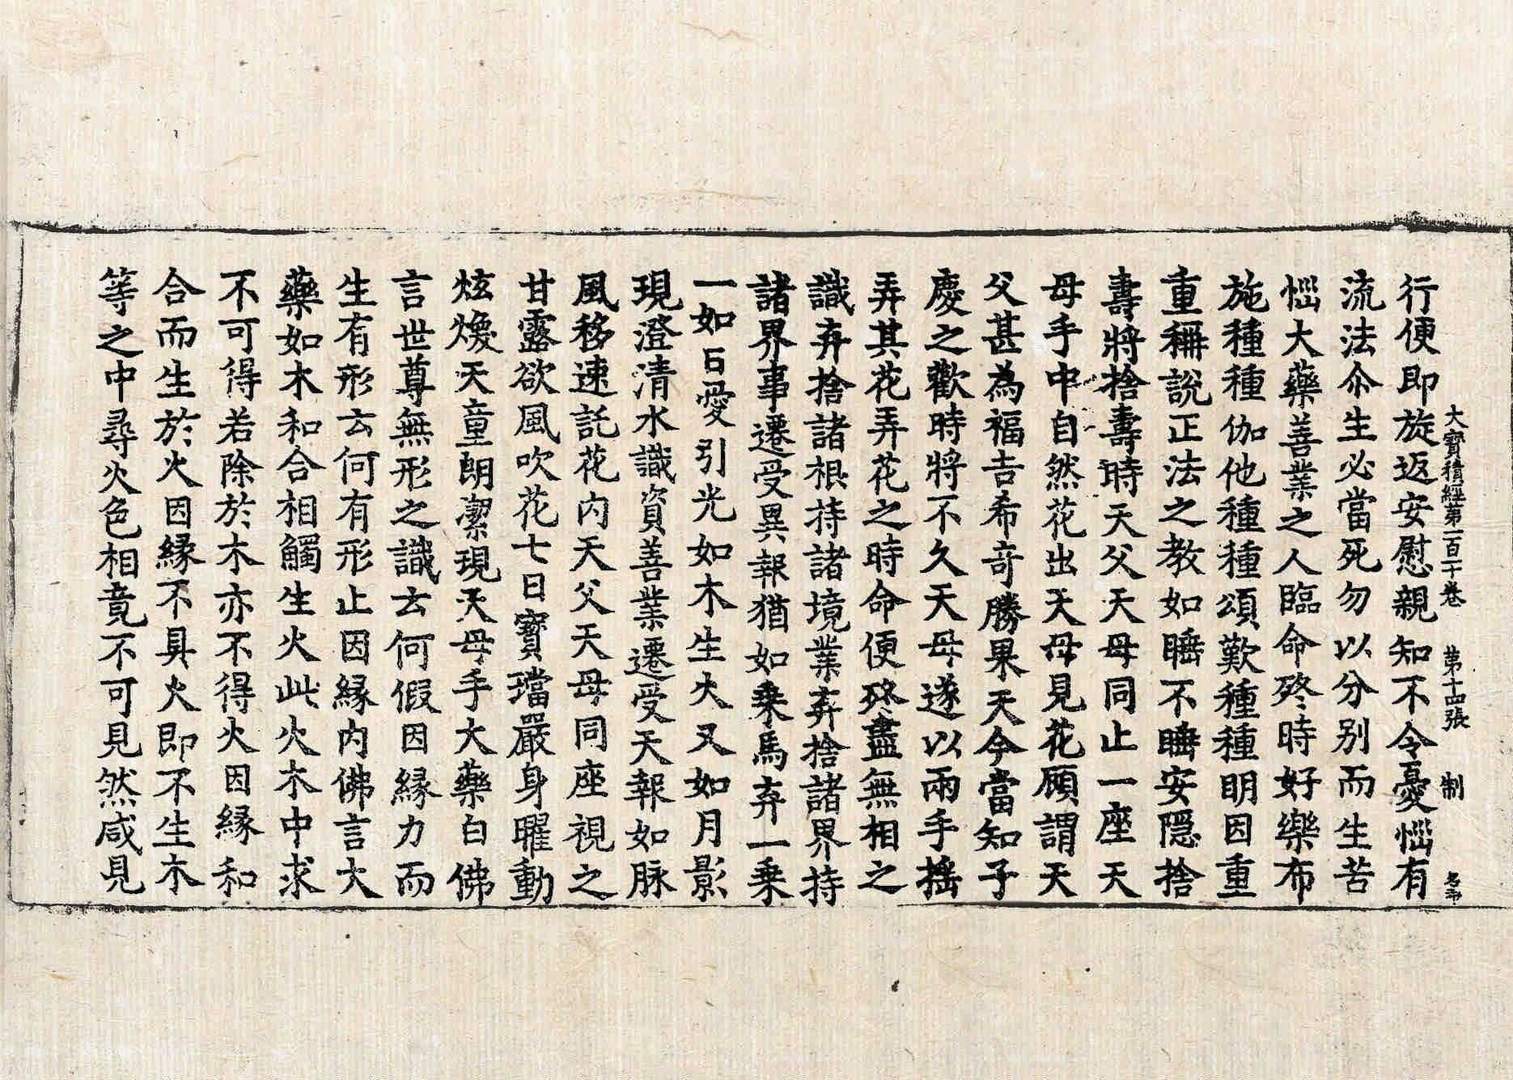 大寶積經第一百十卷 第十四張 制
行便即旋返安慰親知不令憂惱有
流法尒生必當死勿以分別而生苦
惱大藥善業之人臨命終時好樂布
施種種伽他種種頌歎種種明因重
重稱說正法之教如睡不睡安隱捨
壽將捨壽時天父天母同止一座天
母手中自然花出天母見花顧謂天
父甚為福吉希奇勝果天今當知子
慶之歡時將不久天母遂以兩手搖
弄其花弄花之時命便終盡無相之
識弃捨諸根持諸境業弃捨諸界持
諸界事遷受異報猶如乗馬弃一乗
一如日愛引光如木生火又如月影
現澄清水識資善業遷受天報如脉
風移速託花內天父天母同座視之
甘露欲風吹花七日寶璫嚴身曜動
炫煥天童朗潔現天母手大藥白佛
言世尊無形之識云何假因緣力而
生有形云何有形止因緣內佛言大
藥如木和合相觸生火此火木中求
不可得若除於木亦不得火因緣和
合而生於火因緣不具火即不生木
等之中尋火色相竟不可見然咸見